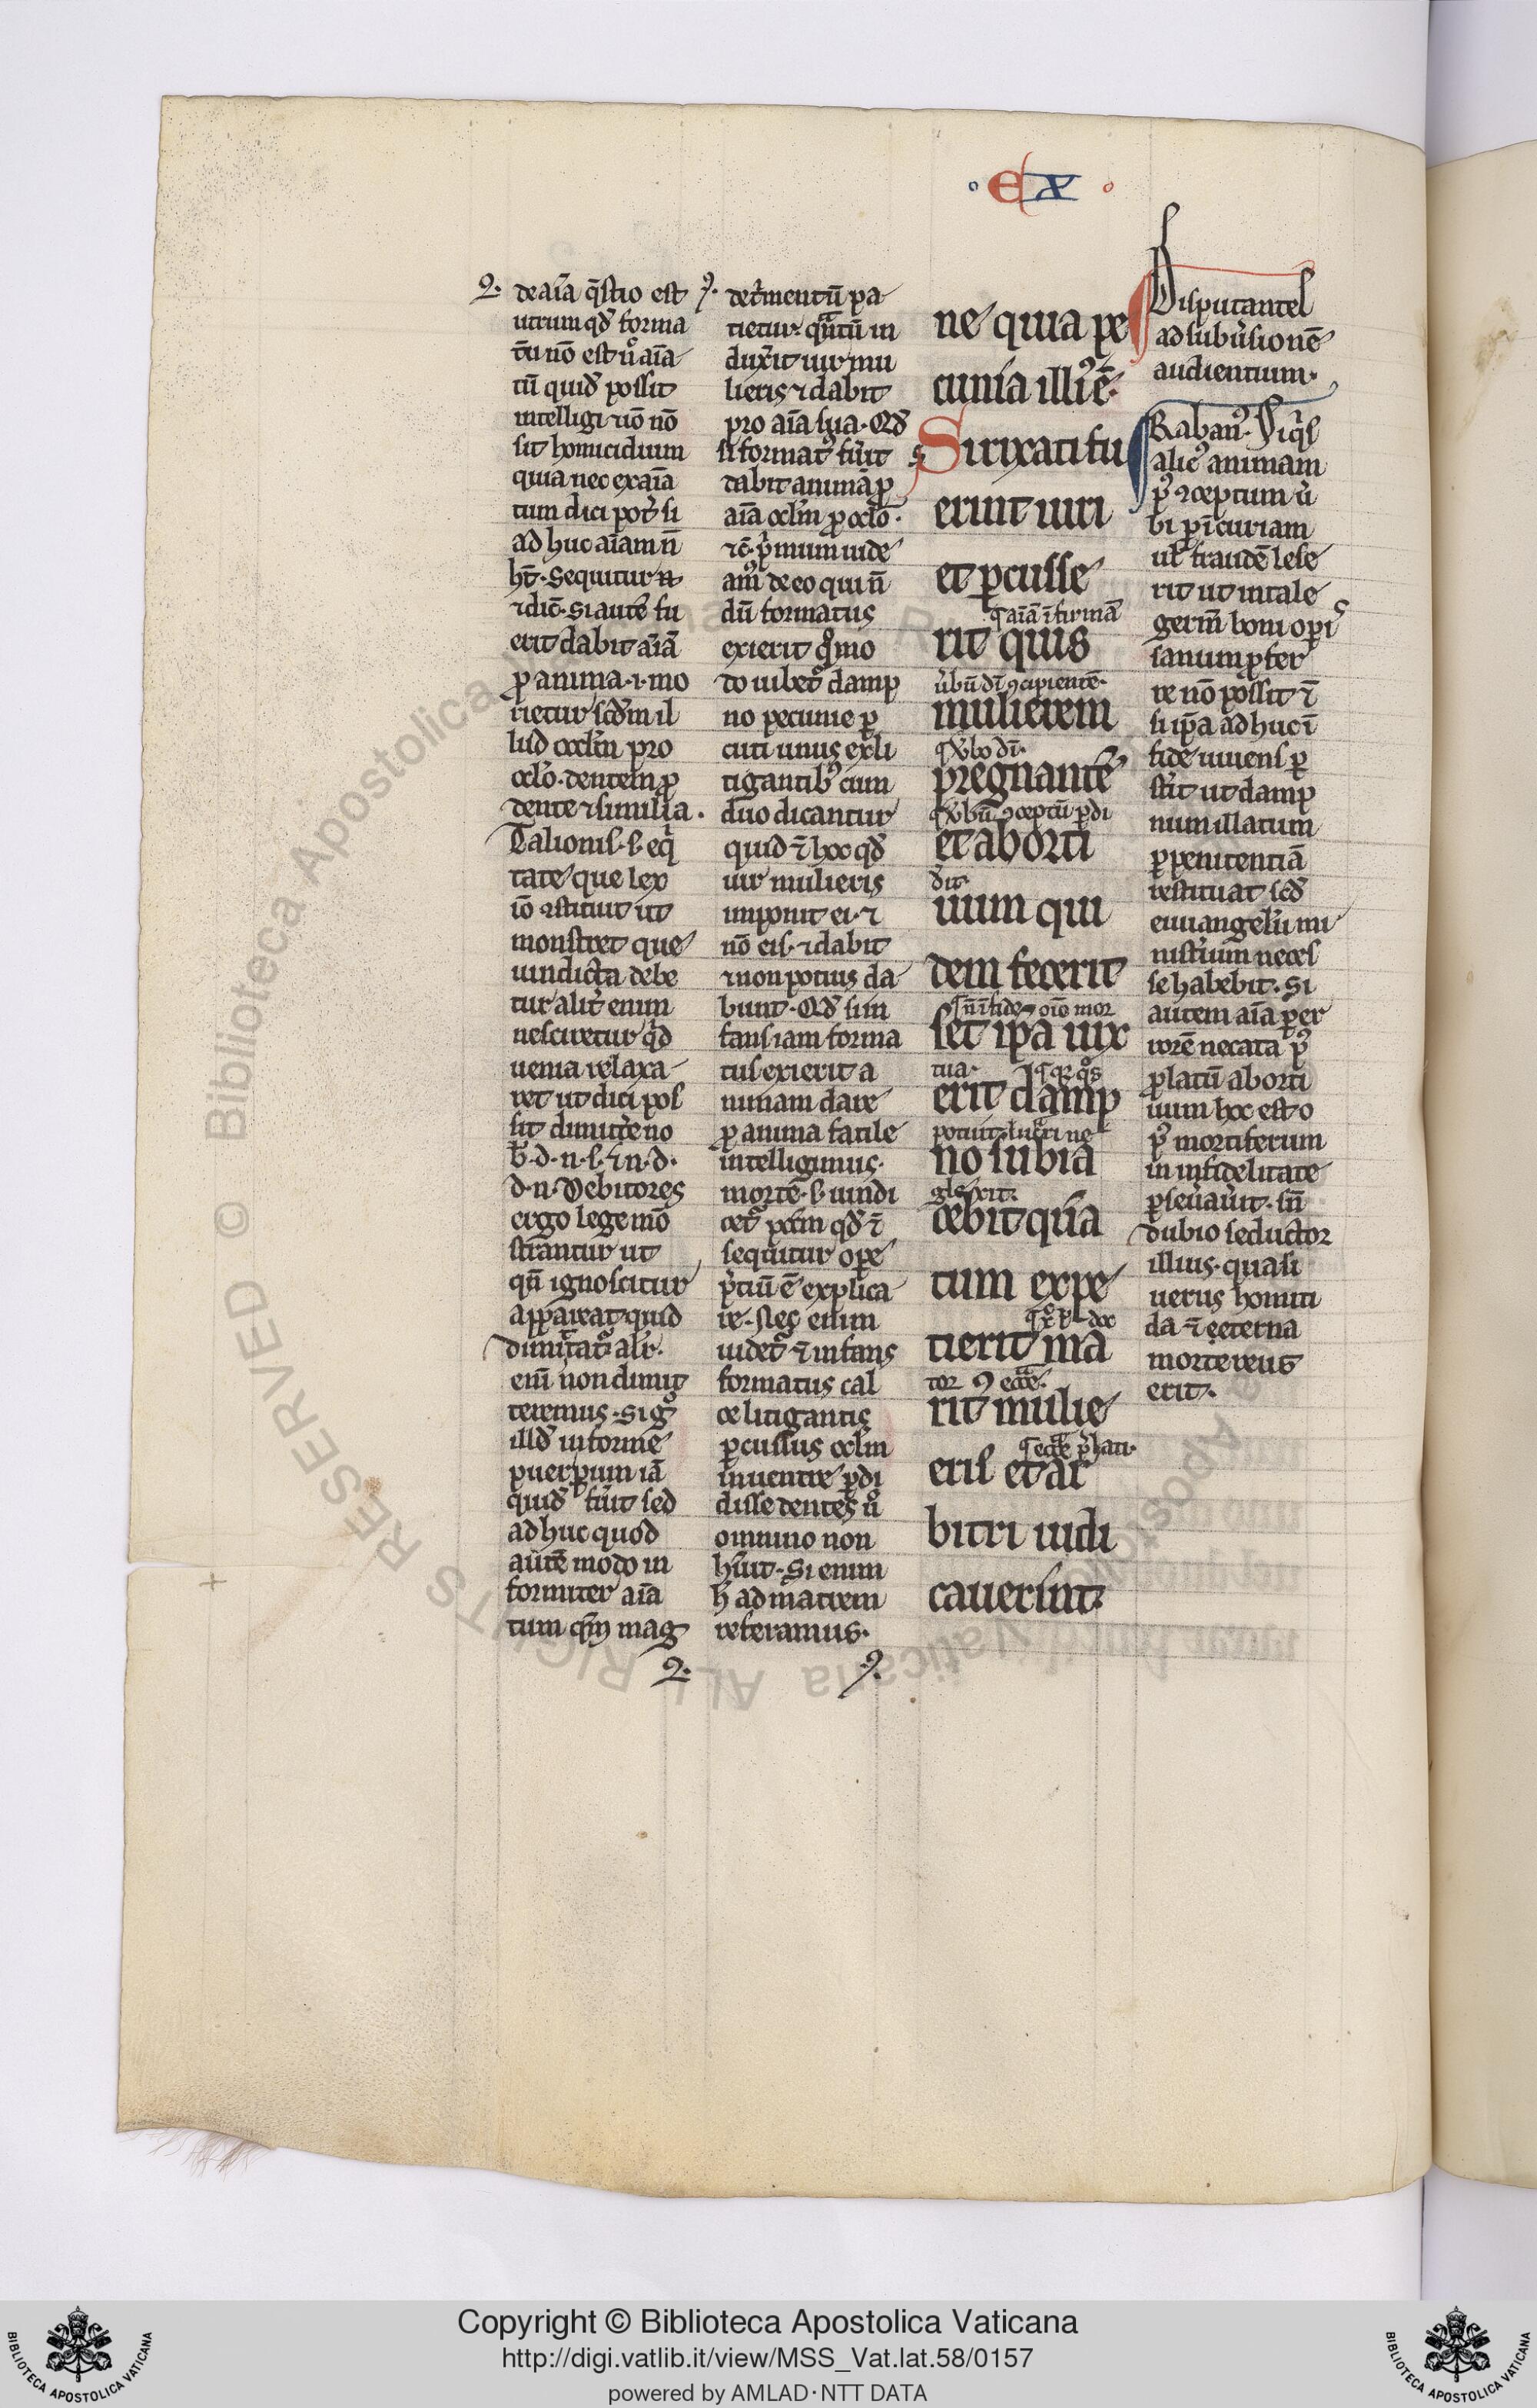 EX
2. de aīa q̄stio est
utrum qd̛ forma
tū nō est ůͦ aīa
tū quid̛ possit
intelligi ⁊ iō nō
sit homicidium
quia nec ex aīa
tum dici pot̛ si
ad huc aīam n̄
ht̄. Sequitur
⁊ dic̄. Si autē fu
erit dabit aīā
ꝓ anima .i. mo
rietur scd̛m il
lud oclm̄ pro
oclo. dentem ꝓ
dente ⁊ similia.
Talionis .s. eq̄
tate que lex
iō ɔstituit ut
monstret que
uindicta debe
tur alit̛ enim
nesciretur qd
uenia relaxa
ret ut dici pos
sit dimitte no
b̄. d. n. s. ⁊ n. d.
d. n. Debitores
ergo lege mō
strantur ut
qn̄ ignoscitur
appareat quid
dimittat̛ alr̄.
eni̅ non dimit
teremus. Si gͦ
illd̛ informe
puerpium iā
quid̛ fu̅it sed
ad huc quod
autē modo in
formiter aīa
tum qm̄ mag
2.
⁊. det̛mentū pa
tietur. qn̄tū in
dux̛it uir mu
lieris ⁊ dabit
pro aīa sua. Qd̛
si format̛ fu̅it
dabit animā ꝓ
aīa oclm̄ ꝓ oclo.
⁊c̄. p̛mum uide
am̛ de eo qui n̄
dū formatus
exierit qͦmo
do iubet̛ damp
no pecunie ꝑ
cuti unus ex li
tigantib̛ cum
duo dicantur
quid ē hoc qd̛
uir mulieris
imponit ei. ⁊
nō eis. ⁊ dabit
⁊ non potius da
bunt. Qd̛ si in
fans iam forma
tus exierit a
nimam dare
ꝓ anima facile
intelligimus.
mortē. s. uindi
cet̛ porm̄ qd̛ ē
sequitur ope
p̛ciū ē explica
re. Nec enim
uidet̛ ē infans
formatus cal
ce litigantis
ꝑcussus oclm̄
in uentre ꝑdi
disse dentes ůͦ
omnino non
hu̅it. Si enim
h̄ ad matrem
referamus.
⁊.
ne quia pe
cunia illi̛ ē.
Si rixati fu
erint uiri
et ꝑcusse
¶ aīā ī firmā
rit quis
ůbū dī ɔcipientē.
mulierem
¶ ůbo dī.
pregnantē
¶ ůbū ɔceptū ꝑdi
et aborti
dit.
uum qui
dem fecerit
¶ n̄ ī fide oīo mor
set ipa uix
tua. ¶ q̛ qͦs
erit damp
potuit lucri ne
no subia
glexit.
cebit q̛ntͣ
tum expe
tierit ma
tor ⁊ ecc̄e.
rit mulie
¶ ecc̄e p̛lati.
eris et ar
bitri iudi
cauerint.
Disputantes
ad subu̅sionē
audientium.
Raban̛. Si qͥs
alic̛ animam
p̛ ɔceptum ů
bi ꝑ ī curiam
ul̛ fraudē lese
rit ut in tale
germ̄ boni opis
sanum ꝓfer
re nō possit ē
si ipa ad huc ī
fide uiuens ꝑ
stit̛ ut damp
num illatum
ꝑ penitentiā
restituat scd̛
euuangelii mi
nist̛ium neces
se habebit. Si
autem aīa ꝑ er
rorē necata p̛
ꝓlatū aborti
uum hoc est o
p̛ mortiferum
in infidelitate
ꝑseu̅au̅it. sn̄
dubio seductor
illius. quasi
uerus homici
da ē ęterna
morte reus
erit.
ALL RIGHTS RESERVED © Biblioteca Apostolica Vaticana
Copyright © Biblioteca Apostolica Vaticana
http://digi.vatlib.it/view/MSS_Vat.lat.58/0157
powered by AMLAD·NTT DATA
BIBLIOTECA APOSTOLICA VATICANA
BIBLIOTECA APOSTOLICA VATICANA